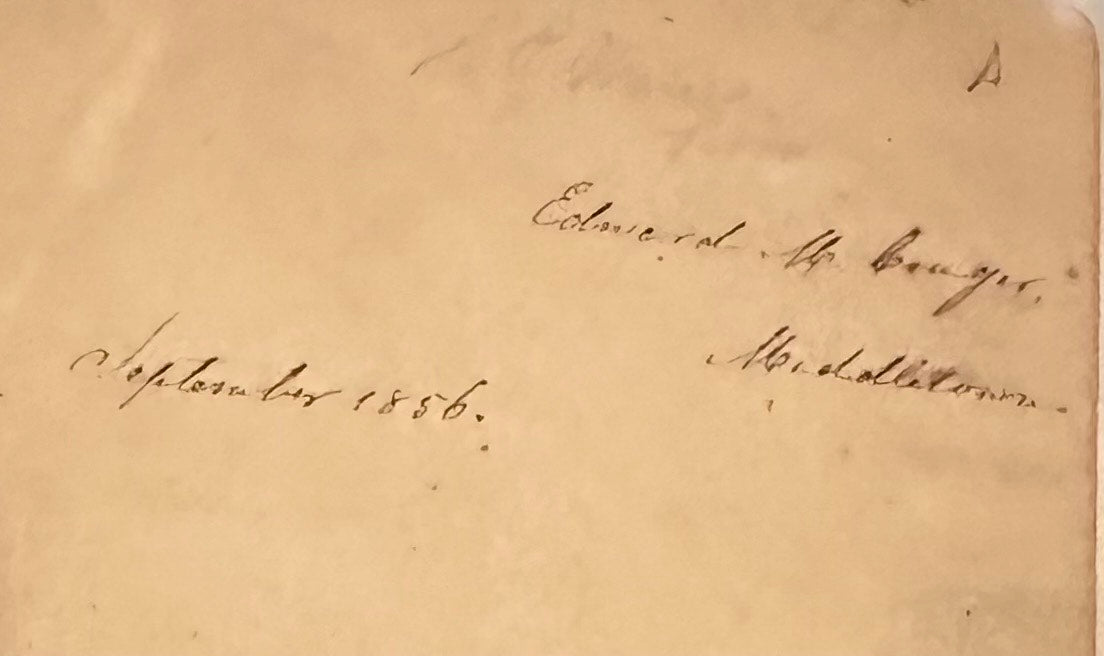 A
Edward M.
Middletown.
September 1856.